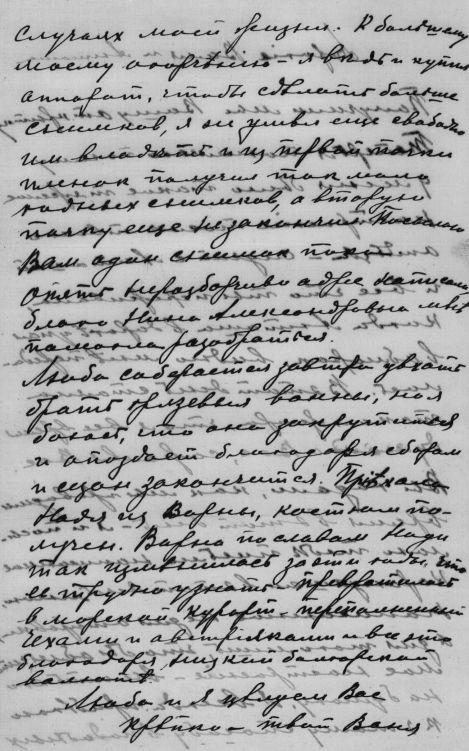 случаях моей жизни. К большему
моему огорчению – я ведь и купил
аппарат, чтобы сделать больше
снимков, я не умел еще свободно
им владеть и из первой пачки
пленок получил так мало
годных снимков, а вторую
пачку еще не закончил. Посылаю
Вам один снимок пока.
Опять неразборчиво адрес написали
благо Нина Александровна мне
помогла разобраться.
Люба собирается завтра уехать
брать грязевыя ванны, но я
боюсь, что она закрутится
и опоздает благодаря сборам
и сезон закончится. Приехала
Надя из Варны, костюм по-
лучен. Варна по словам Нади
так изменилась за эти годы, что
ее трудно узнать превратилась
в морской курорт – переполненный
чехами и австрияками и все это
благодаря низкой болгарской
валюте.
Люба и я целуем Вас
крепко – твой Ваня